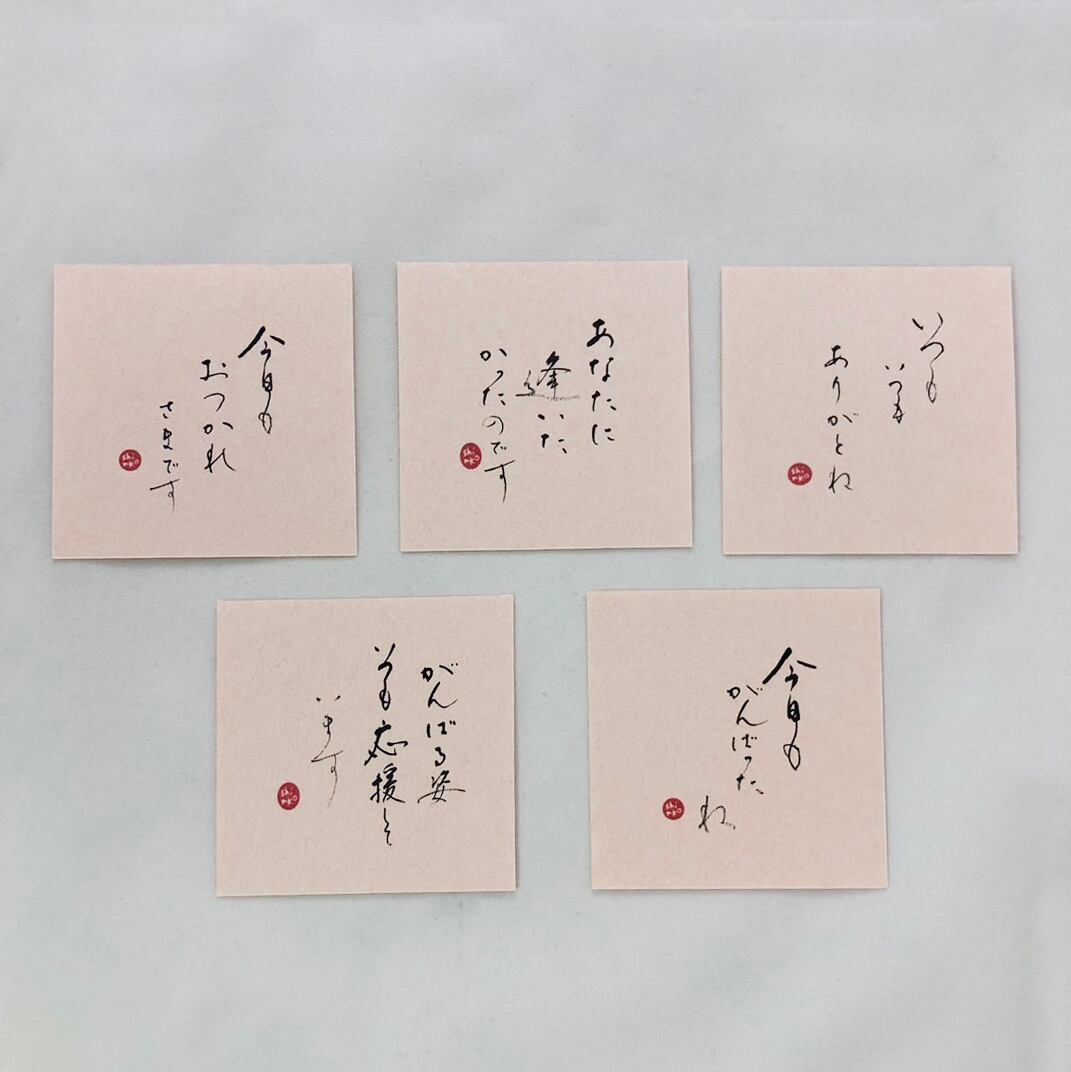 今日も
おつかれ
さまです
shi
nko
あなたに
逢いた
かったのです
shi
nko
いつも
いつも
ありがとね
shi
nko
がんばる姿
いつも応援して
います
shi
nko
今日も
がんばった
ね
shi
nko